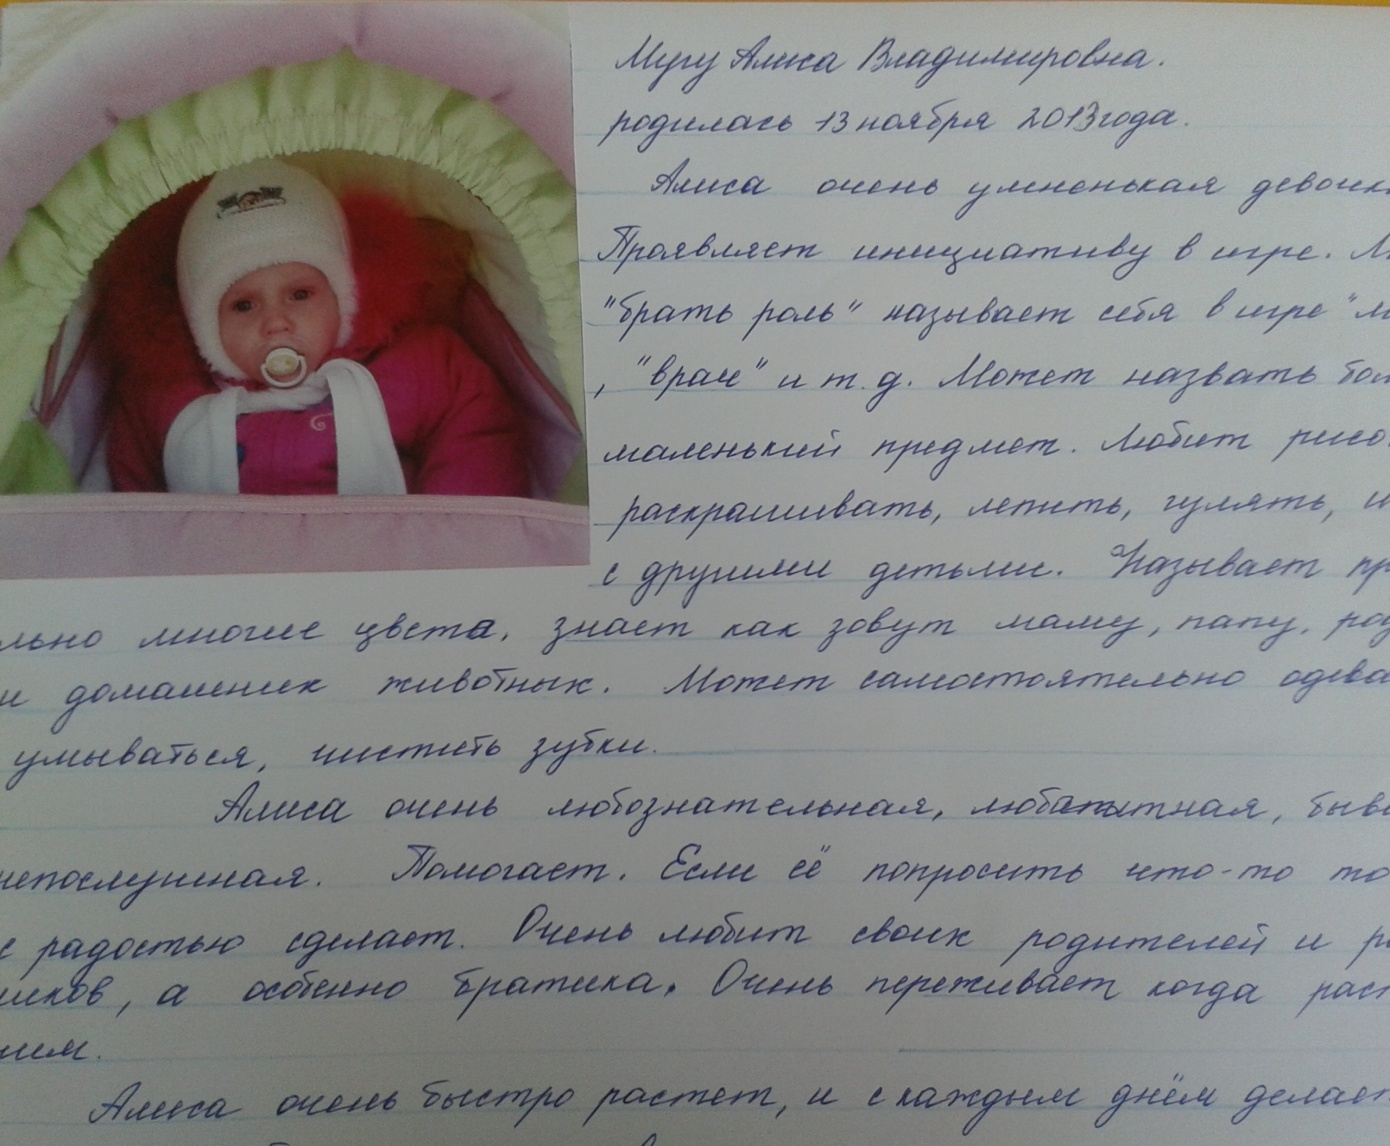 Мугу Алиса Владимировна.
родилась 13 ноября 2013 года.
Алиса очень умненькая девочк
Проявляет инициативу в игре. Л
"брать роль" называет себя в игре "м
, "врач" и т.д. Может назвать бол
маленький предмет. Любит рисо
раскрашивать, лепить, гулять, и
с другими детьми. Называет пр
льно многие цвета, знает как зовут маму, папу, род
и домашних животных. Может самостоятельно одева
умываться, чистить зубки.
Алиса очень любознательная, любопытная, быва
непослушная. Помогает. Если её попросить что-то то
с радостью сделает. Очень любит своих родителей и р
иков, а особенно братика. Очень переживает когда раст
ним.
Алиса очень быстро растет, и с каждым днём делает